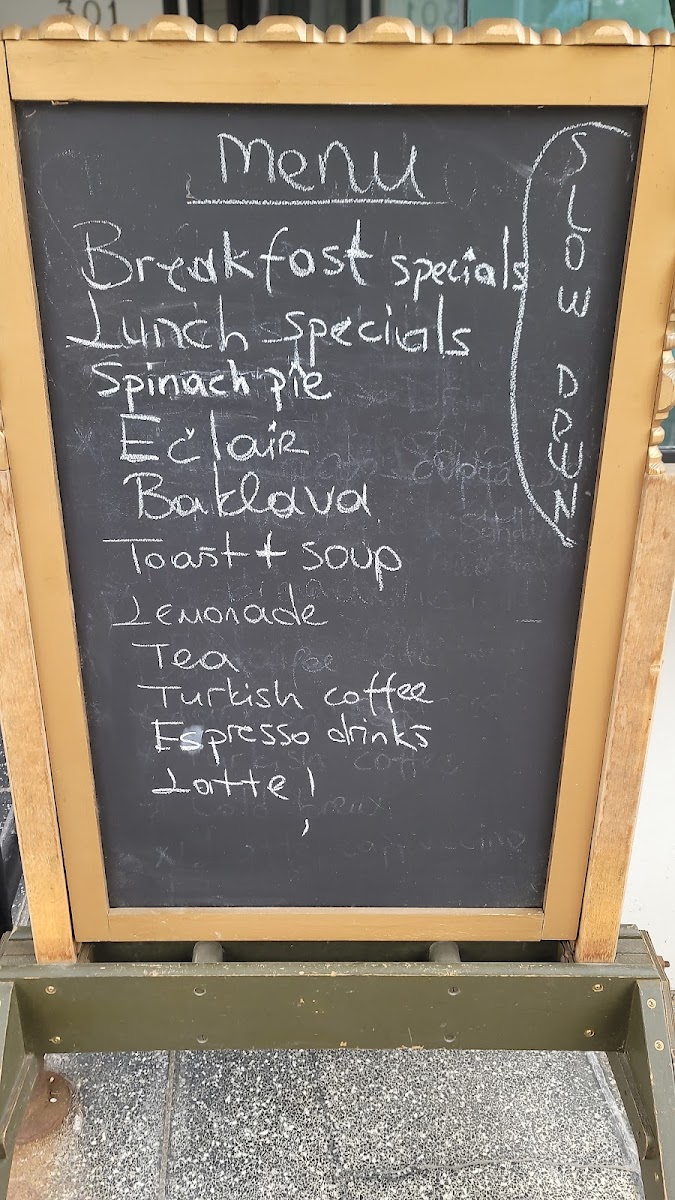 301
Menu
Breakfast specials
Lunch specials
Spinach pie
Eclair
Baklava
Toast + soup
Lemonade
Tea
Turkish coffee
Espresso drinks
Latte!
SLOW DOWN